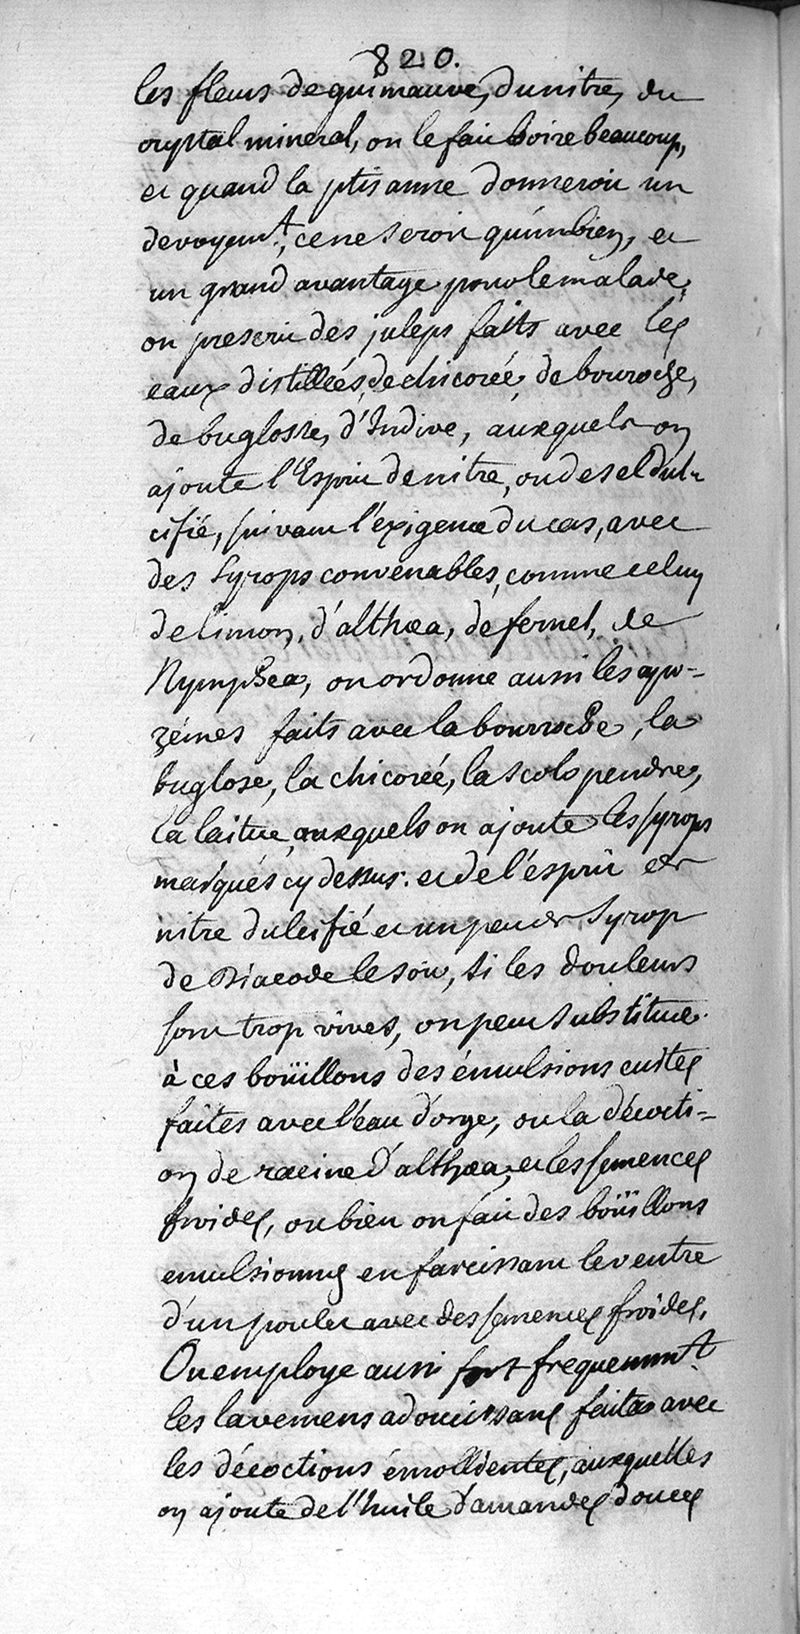 820.
les fleurs de guimauve, du nitre, du
crystal mineral, on le fait boire beaucoup,
et quand la ptisanne donneroit un
devoyem.t, ce ne seroit qu'un bien, et
un grand avantage pour le malade,
on prescrit des juleps faits avec les
eaux distillées, de chicorée, de bourache,
de buglosse, d'Indive, auxquels on
ajoute l'Esprit de nitre, ou de sel dul-
cifié, suivant l'éxigence du cas, avec
des Syrops convenables, comme celuy
de limon, d'althœa, de fernel, de
Nymphea, on ordonne aussi les apo-
zémes faits avec la bourrache, la
buglose, la chicorée, la scolopendre,
la laitue, auxquels on ajoute les syrops
marqués cy dessus. et de l'esprit de
nitre dulcifié et un peu de Syrop
de Diacode le soir, si les douleurs
sont trop vives, on peut substituer
à ces boüillons des émulsions cuites
faites avec l'eau d'orge, ou la décocti-
on de racine d'althœa, et les semences
froides, ou bien on fait des boüillons
emulsionnés en farcissant le ventre
d'un poulet avec des semences froides,
On employe aussi fort frequemm.t
les lavemens adoucissans faites avec
les décoctions émollientes, auxquelles
on ajoute de l'huile d'amandes douces